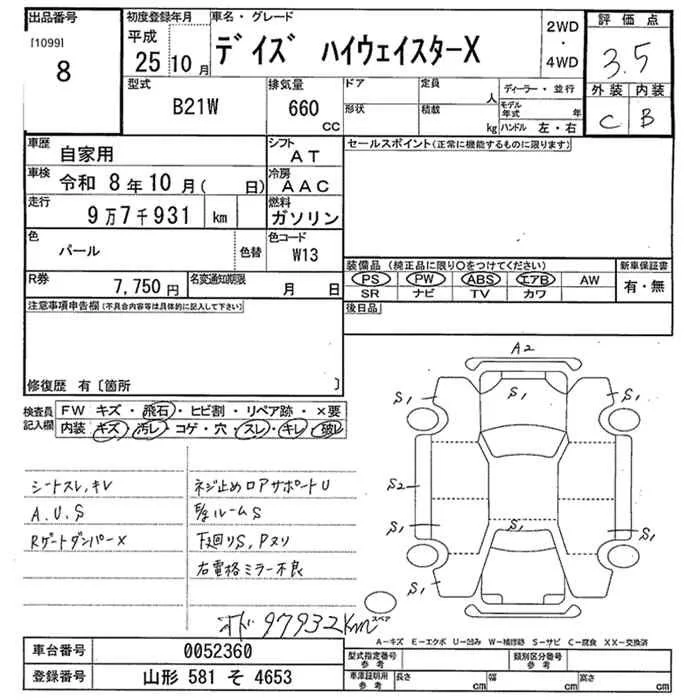 出品番号
[1099]
8
初度登録年月
平成
25 10 月
車名・グレード
デイズ ハイウェイスターX
2WD
・
4WD
評価点
3.5
外装 内装
C B
型式
B21W
排気量
660
CC
ドア
形状
定員
人
積載
kg
ディーラー・並行
モデル年式 年
ハンドル 左・右
車歴
自家用
シフト
AT
セールスポイント(正常に機能するものに限ります)
車検
令和 8年10月( 日)
冷房
AAC
走行
9万7千931 km
燃料
ガソリン
色
パール
色替
色コード
W13
装備品(純正品に限り〇をつけてください)
新車保証書
PS PW ABS エアB AW
有・無
SR ナビ TV カワ
R券
7,750円
名変通知期限
月 日
後日品
注意事項申告欄(不具合内容等は具体的に記入して下さい)
修復歴 有〔箇所 〕
検査員記入欄
FW キズ・飛石・ヒビ割・リペア跡・×要
内装 キズ・汚レ・コゲ・穴・スレ・キレ・破レ
シートスレ,キレ
A.U.S
Rゲートダンパー×
ネジ止めロアサポートU
E/gルームS
下廻りS,Pスリ
右電格ミラー不良
オド 97932km
A2
S1 S1 S1
S2
S1 S1
S1 S1
スペア
A－キズ E－エクボ U－凹み W－補修跡 S－サビ C－腐食 XX－交換済
車台番号
0052360
型式指定番号
参考
類別区分番号
参考
登録番号
山形 581 そ 4653
車庫証明用
参考
長さ cm
幅 cm
高さ cm